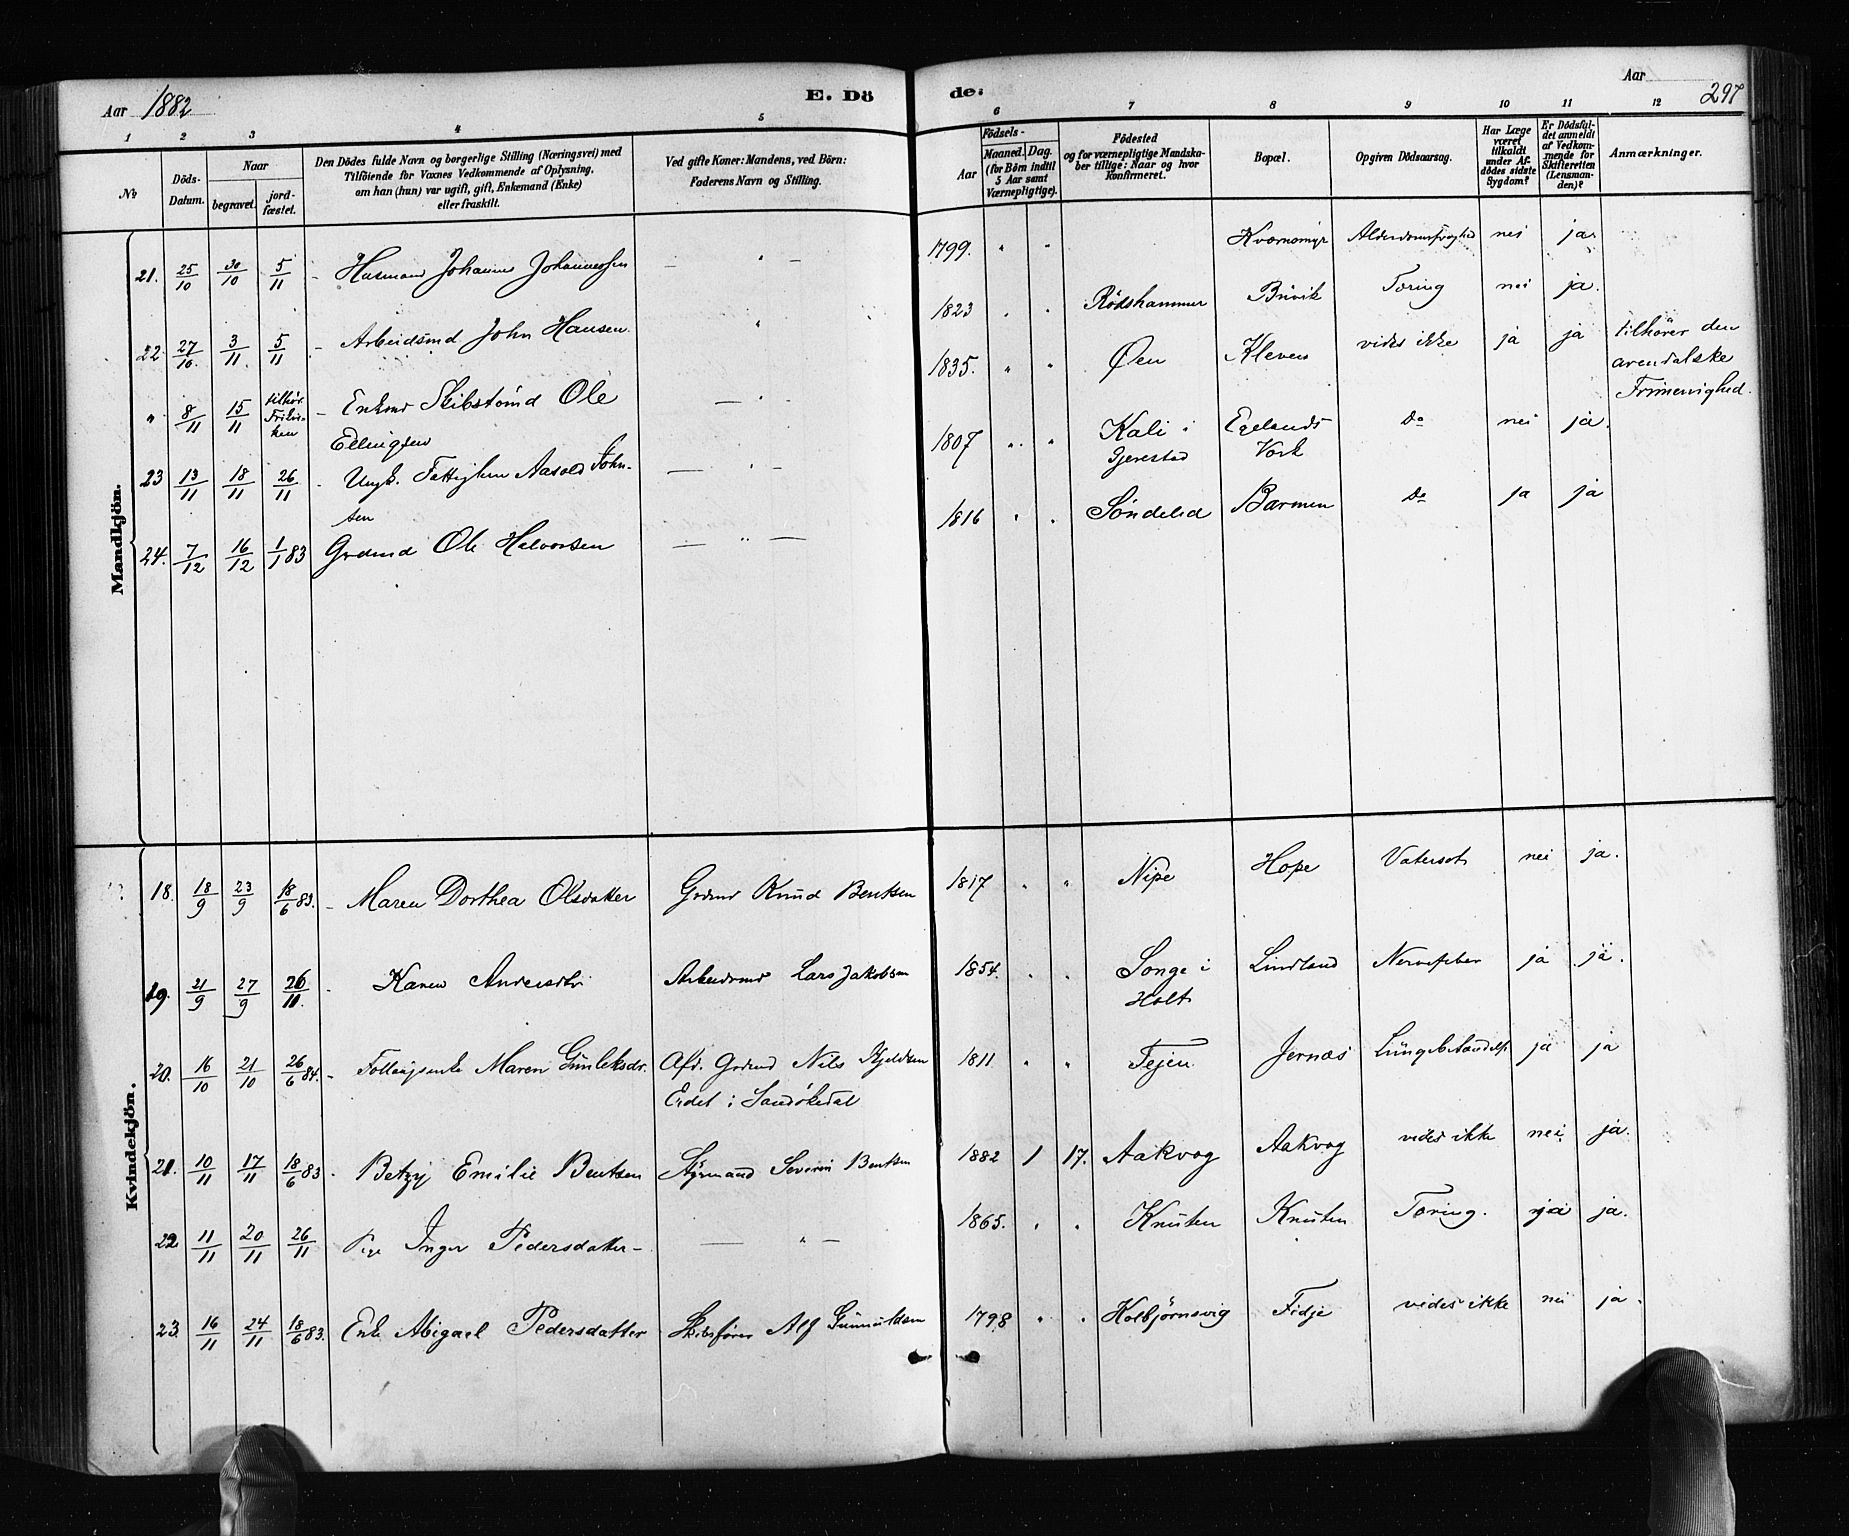 Aar 1882
E. Döde:
Aar
297
1 2 3 4 5 6 7 8 9 10 11 12
№
Döds-
Datum.
Naar
begravet.
jord-
fæstet.
Den Dödes fulde Navn og borgerlige Stilling (Næringsvei) med
Tilföiende for Voxnes Vedkommende af Oplysning,
om han (hun) var ugift, gift, Enkemand (Enke)
eller fraskilt.
Ved gifte Koner: Mandens, ved Börn:
Faderens Navn og Stilling.
Födsels-
Aar
Maaned. Dag.
(for Börn indtil
5 Aar samt
Værnepligtige).
Födested
og for værnepligtige Mandska-
ber tillige: Naar og hvor
Konfirmeret.
Bopæl.
Opgiven Dödsaarsag.
Har Læge
været
tilkaldt
under Af-
dödes sidste
Sygdom?
Er Dödsfal-
det anmeldt
af Vedkom-
mende for
Skifteretten
(Lensman-
den)?
Anmærkninger.
Mandkjön.
21. 25/10 30/10 5/11 - Husmand Johannes Johannessen — " — 1799. " " Kvernemyr Alderdomssvaghed nei ja.
22 27/10. 3/11. 5/11 - Arbeidsmd John Hansen. " 1823 . . Rødshammer Buvik Tæring nei ja.
" 8/11 15/11 tilhør. Frikir- ken - Enkmd Skibstømd Ole — " — 1835. " " Øen Kleven vides ikke ja ja tilhører den
Ellingsen
arendalske
Frimenighed.
23 13/11 18/11 26/11 - Ungk. Fattiglem Aasold John- — " — 1807 " " Kali i Egelands Do nei ja.
sen
Gjerestad Værk
24. 7/12 16/12 1/1 83 Grdmd Ole Halvorsen — " — 1816 " . Søndeled Barmen Do ja ja
Kvindekjön.
18. 18/9 23/9 18/6 83. - Maren Dorthea Olsdatter Grdmd Knud Bentsen 1817 " " Nipe Hope Vatersot nei ja.
19. 21/9 27/9 26/11. - Karen Andersdtr Arbeidsmd Lars Jakobsen 1854. . . Songe i Lindland Nervefeber ja ja.
Holt
20. 16/10 21/10 26/6 84. - Maren Gunleksdr. Afd. Grdmd Nils Kjeldsen 1811 " " Tejen. Jernæs ja ja
Eidet i Sandøkedal
21. 10/11 17/11 18/6 83 - Betzy Emilie Bentsen Styrmand Severin Bentsen 1882 1 17. Aakvog Aakvog vides ikke nei ja.
22 11/11 20/11 26/11 Pige Inger Pedersdatter - — " — 1865. . . Knuten Knuten Tæring. ja ja.
23. 16/11 24/11 18/6 83. Enk Abigael Pedersdatter Skibsfører Alf Gunnuldsen 1798 . . Kolbjørnsvig Fidje vides ikke nei ja.